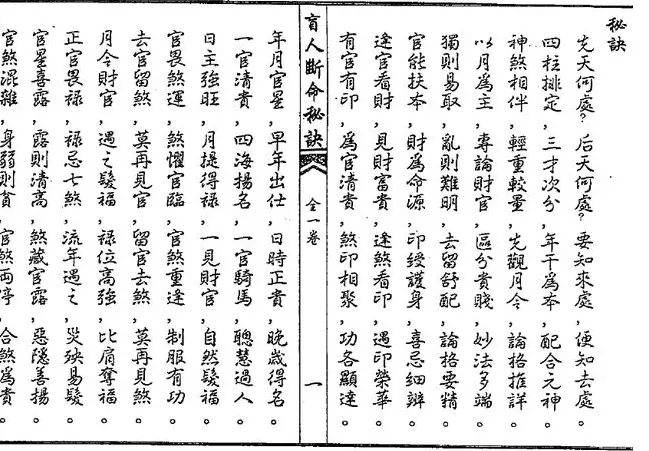 秘訣
先天何處?后天何處?要知來處,便知去處。
四柱排定,三才次分,年干為本,配合元神
神煞相伴,輕重較量,先觀月令,論格推詳
以月為主,專論財官,區分貴賤,妙法多端
獨則易取,亂則難明,去留舒配,論格要精
官能扶本,財為命源,印綬護身,喜忌細辨
逢官看財,見財富貴,逢煞看印,遇印榮華
有官有印,為官清貴,煞印相聚,功各顯達。
盲人斷命秘訣
全一卷
一
年月官星,早年出仕,日時正貴,晚歲得名。
一官清貴,四海揚名,一官騎馬,聰慧過人。
日主強旺,月提得祿,一見財官,自然髮福。
官畏煞運,煞懼官臨,官煞重逢,制服有功。
去官留煞,莫再見官,留官去煞,莫再見煞。
月令財官,遇之髮福,祿位高強,比肩奪福。
正官畏祿,祿忌七煞,流年遇之,災殃易髮。
官星喜露,露則清高,煞藏官露,惡隱善揚。
官煞混雜,身弱則貧,官煞兩停,合煞為貴。